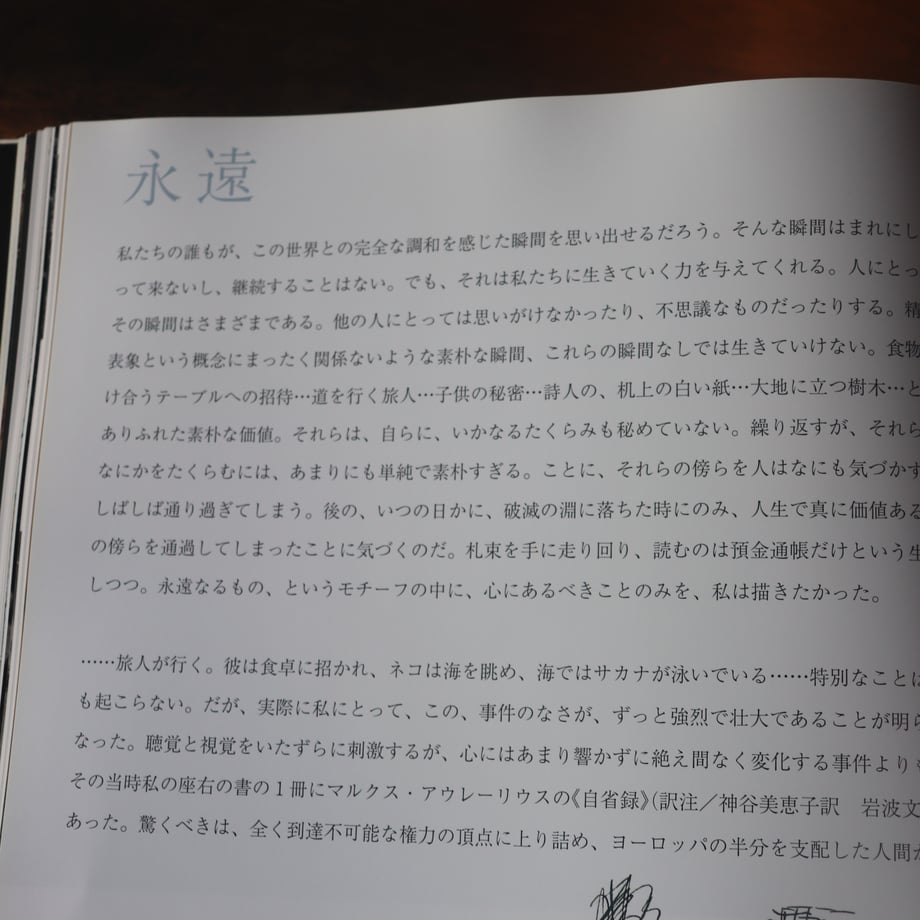 永遠
私たちの誰もが、この世界との完全な調和を感じた瞬間を思い出せるだろう。そんな瞬間はまれにし
って来ないし、継続することはない。でも、それは私たちに生きていく力を与えてくれる。人にとっ
その瞬間はさまざまである。他の人にとっては思いがけなかったり、不思議なものだったりする。精
表象という概念にまったく関係ないような素朴な瞬間、これらの瞬間なしでは生きていけない。食物
け合うテーブルへの招待…道を行く旅人…子供の秘密…詩人の、机上の白い紙…大地に立つ樹木…と
ありふれた素朴な価値。それらは、自らに、いかなるたくらみも秘めていない。繰り返すが、それら
なにかをたくらむには、あまりにも単純で素朴すぎる。ことに、それらの傍らを人はなにも気づかず
しばしば通り過ぎてしまう。後の、いつの日かに、破滅の淵に落ちた時にのみ、人生で真に価値ある
の傍らを通過してしまったことに気づくのだ。札束を手に走り回り、読むのは預金通帳だけという生
しつつ。永遠なるもの、というモチーフの中に、心にあるべきことのみを、私は描きたかった。
……旅人が行く。彼は食卓に招かれ、ネコは海を眺め、海ではサカナが泳いでいる……特別なことは
も起こらない。だが、実際に私にとって、この、事件のなさが、ずっと強烈で壮大であることが明ら
なった。聴覚と視覚をいたずらに刺激するが、心にはあまり響かずに絶え間なく変化する事件よりも
その当時私の座右の書の1冊にマルクス・アウレーリウスの《自省録》(訳注／神谷美恵子訳　岩波文
あった。驚くべきは、全く到達不可能な権力の頂点に上り詰め、ヨーロッパの半分を支配した人間が